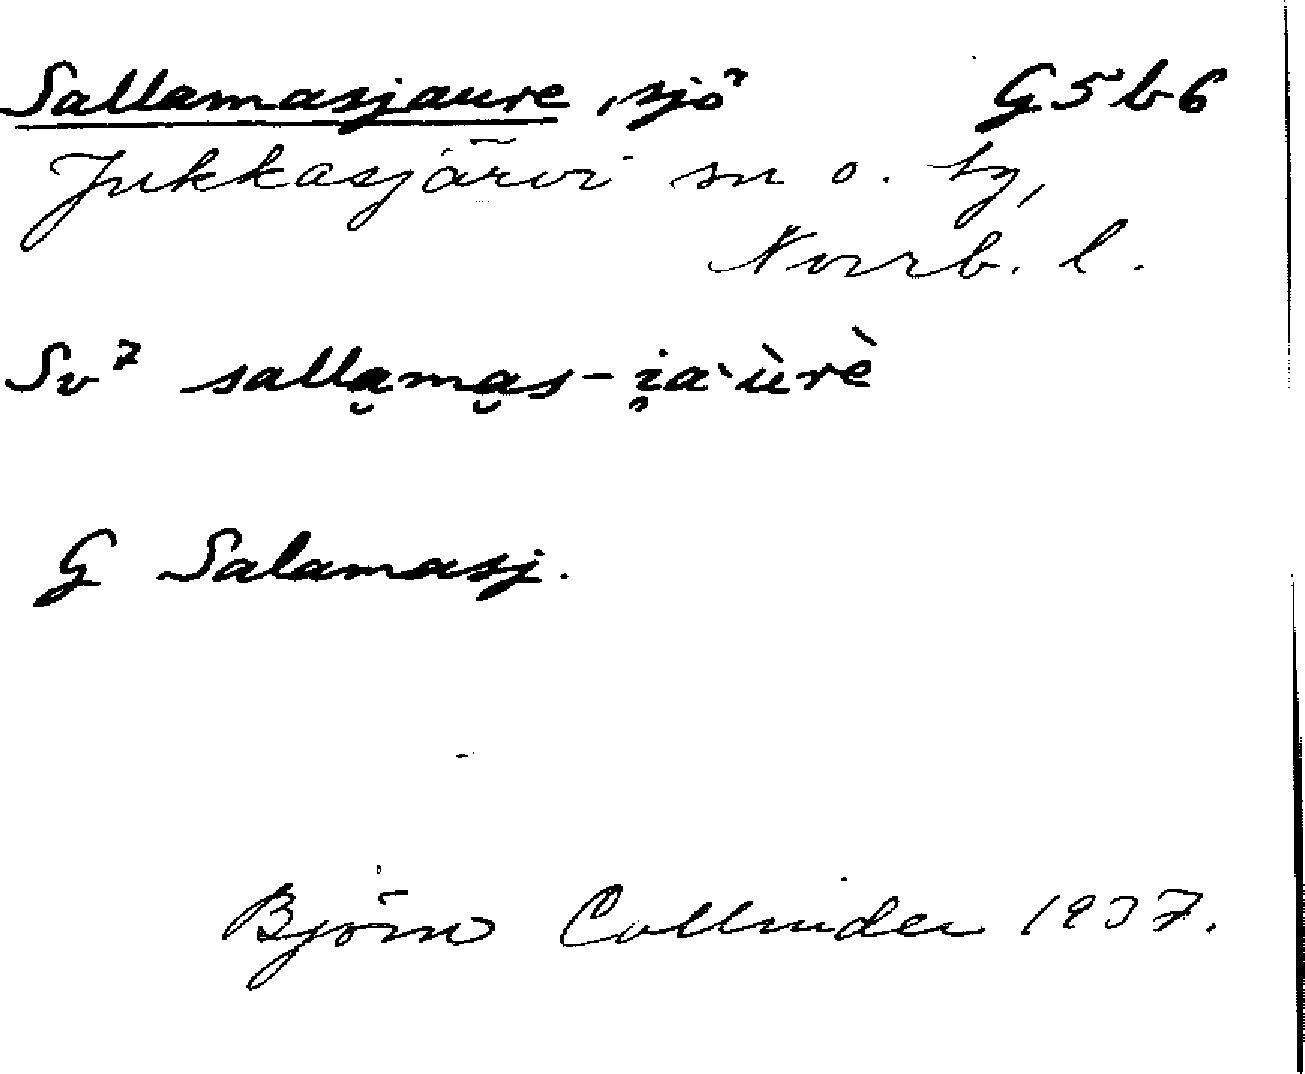 Sallamasjaure, sjö G5b6
Jukkasjärvi sn o. tg,
Norrb. l.
Sv⁷ salla̮ma̮s-i̯a`ùrè
G Salamasj.
Björn Collinder 1937.